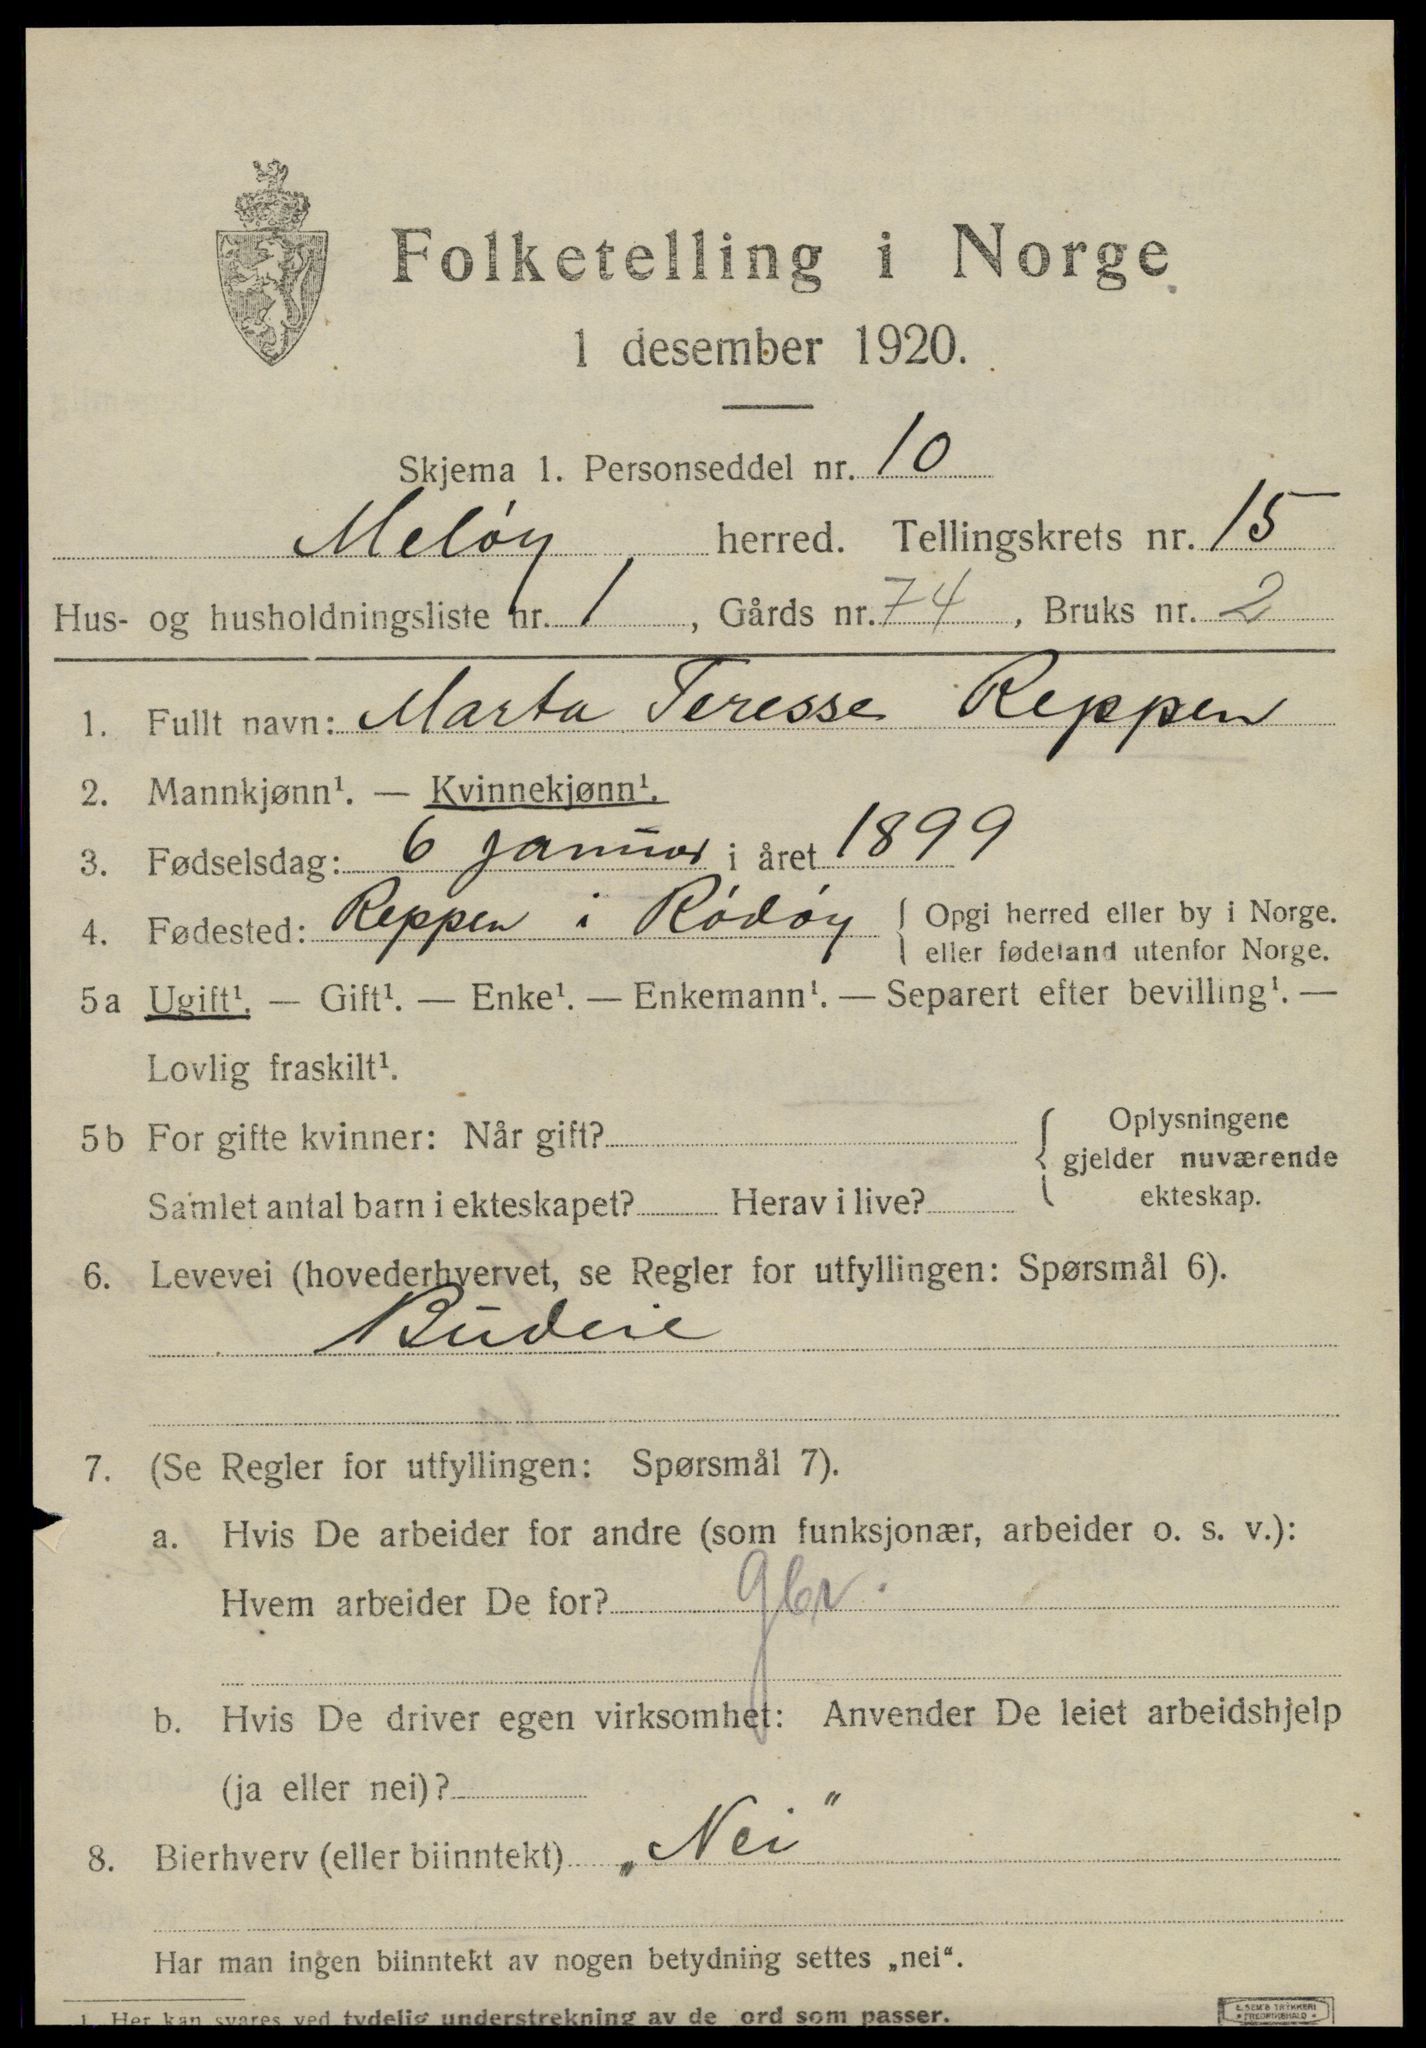 Folketelling i Norge
1 desember 1920.
Skjema 1. Personseddel nr. 10
Meløy herred. Tellingskrets nr. 15
Hus- og husholdningsliste nr. 1, Gårds nr. 74, Bruks nr. 2
1. Fullt navn: Marta Teresse Reppen
2. Mannkjønn¹. — Kvinnekjønn¹.
3. Fødselsdag: 6 januar i året 1899
4. Fødested: Reppen i Rødøy { Opgi herred eller by i Norge.
eller fødeland utenfor Norge.
5a Ugift¹. — Gift¹. — Enke¹. — Enkemann¹. — Separert efter bevilling¹. —
Lovlig fraskilt¹.
5b For gifte kvinner: Når gift? { Oplysningene
gjelder nuværende
ekteskap.
Samlet antal barn i ekteskapet? Herav i live?
6. Levevei (hovederhvervet, se Regler for utfyllingen: Spørsmål 6).
Budeie
7. (Se Regler for utfyllingen: Spørsmål 7).
a. Hvis De arbeider for andre (som funksjonær, arbeider o. s. v.):
Hvem arbeider De for? gbr.
b. Hvis De driver egen virksomhet: Anvender De leiet arbeidshjelp
(ja eller nei)?
8. Bierhverv (eller biinntekt) „Nei"
Har man ingen biinntekt av nogen betydning settes „nei“.
1. Her kan svares ved tydelig understrekning av de ord som passer.
E. SEM'S TRYKKERI
FREDRIKSHALD